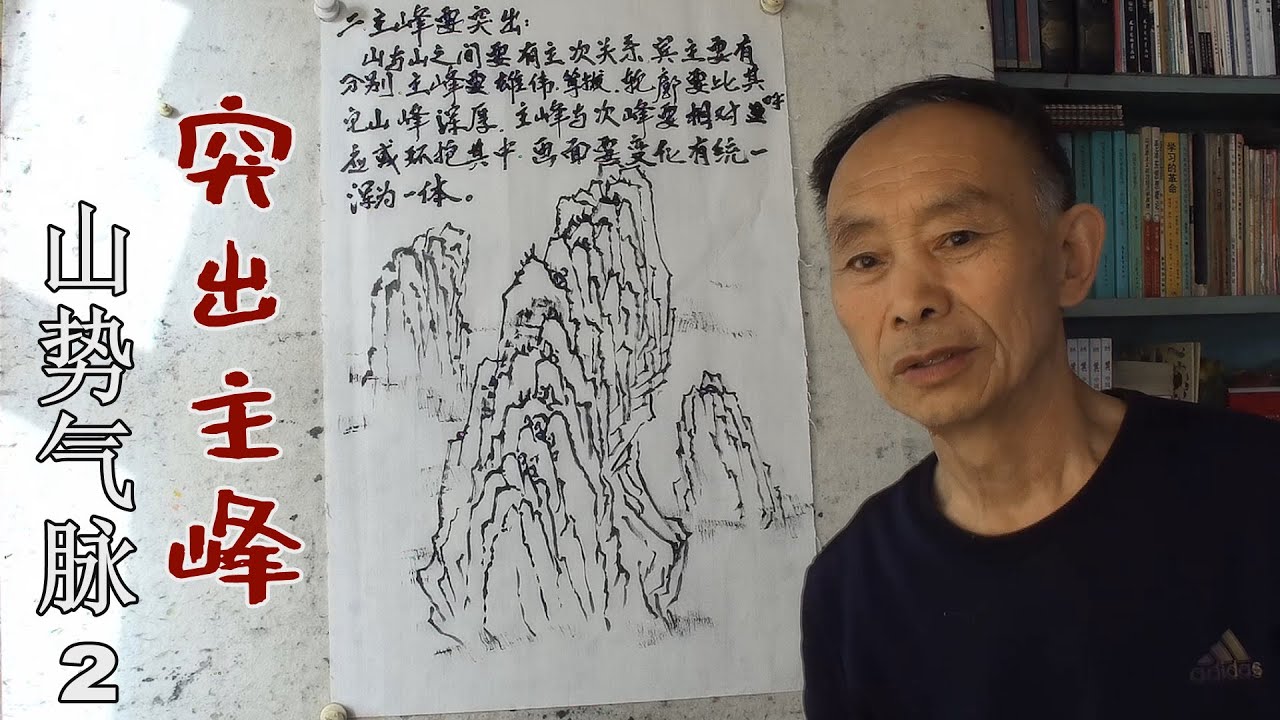 突出主峰
山势气脉2
二主峰要突出:
山与山之间要有主次关系宾主要有
分别.主峰要雄伟.轮廓要比其
它山峰浑厚.主峰与次峰要相对呼
应或环抱其中.画面要变化有统一
浑为一体。
学习的革命
adidas